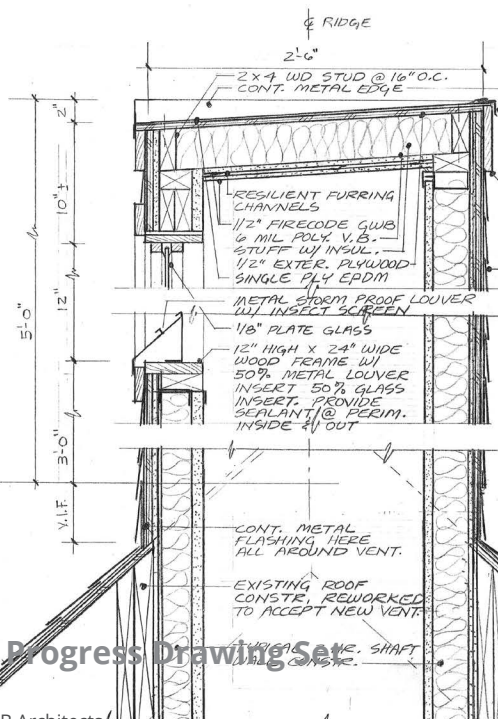 ℄ RIDGE
2'-6"
2 x 4 WD STUD @ 16" O.C.
CONT. METAL EDGE
2"
10" ±
12"
5'-0"
3'-0"
V.I.F.
RESILIENT FURRING
CHANNELS
1/2" FIRECODE GWB
6 MIL POLY. V.B.
STUFF W/ INSUL.
1/2" EXTER. PLYWOOD
SINGLE PLY EPDM
METAL STORM PROOF LOUVER
W/ INSECT SCREEN
1/8" PLATE GLASS
12" HIGH x 24" WIDE
WOOD FRAME W/
50% METAL LOUVER
INSERT 50% GLASS
INSERT. PROVIDE
SEALANT @ PERIM.
INSIDE & OUT
CONT. METAL
FLASHING HERE
ALL AROUND VENT.
EXISTING ROOF
CONSTR, REWORKED
TO ACCEPT NEW VENT
SHAFT
CONSTR.
Progress Drawing Set
Architects